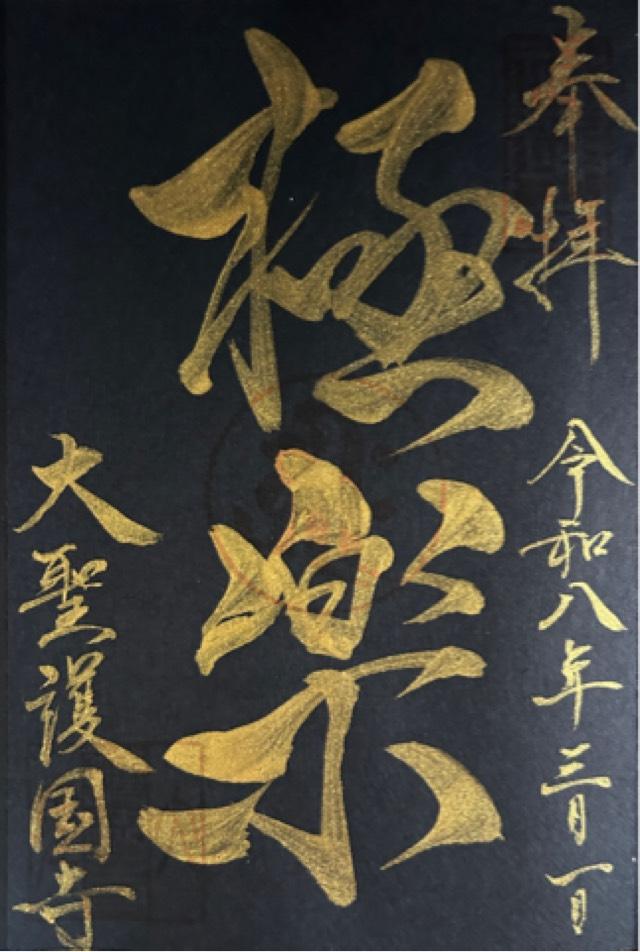 奉拝
令和八年三月一日
極楽
大聖護国寺